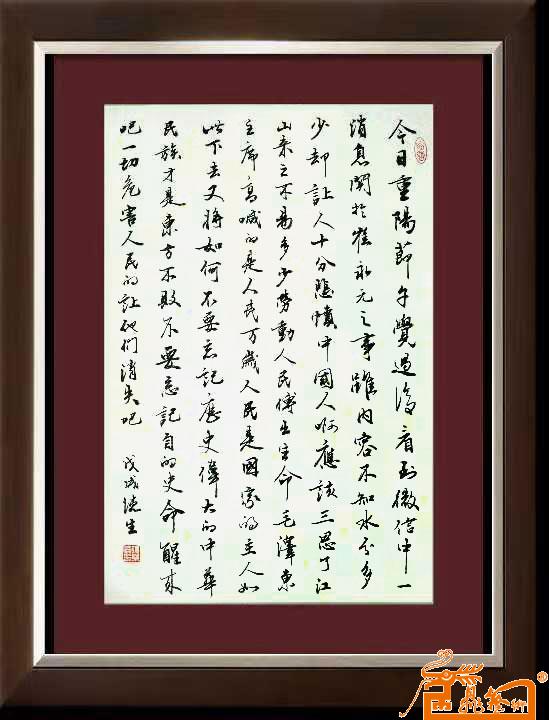 今日重陽節午覺過後看到微信中一
消息關於崔永元之事雖內容不知水分多
少却讓人十分悲憤中國人啊應該三思了江
山來之不易多少勞動人民付出生命毛澤東
主席高喊的是人民万歲人民是國家的主人如
此下去又將如何不要忘記歷史偉大的中華
民族才是東方不敗不要忘記自的史命醒来
吧一切危害人民的讓他們消失吧
戊戌 生